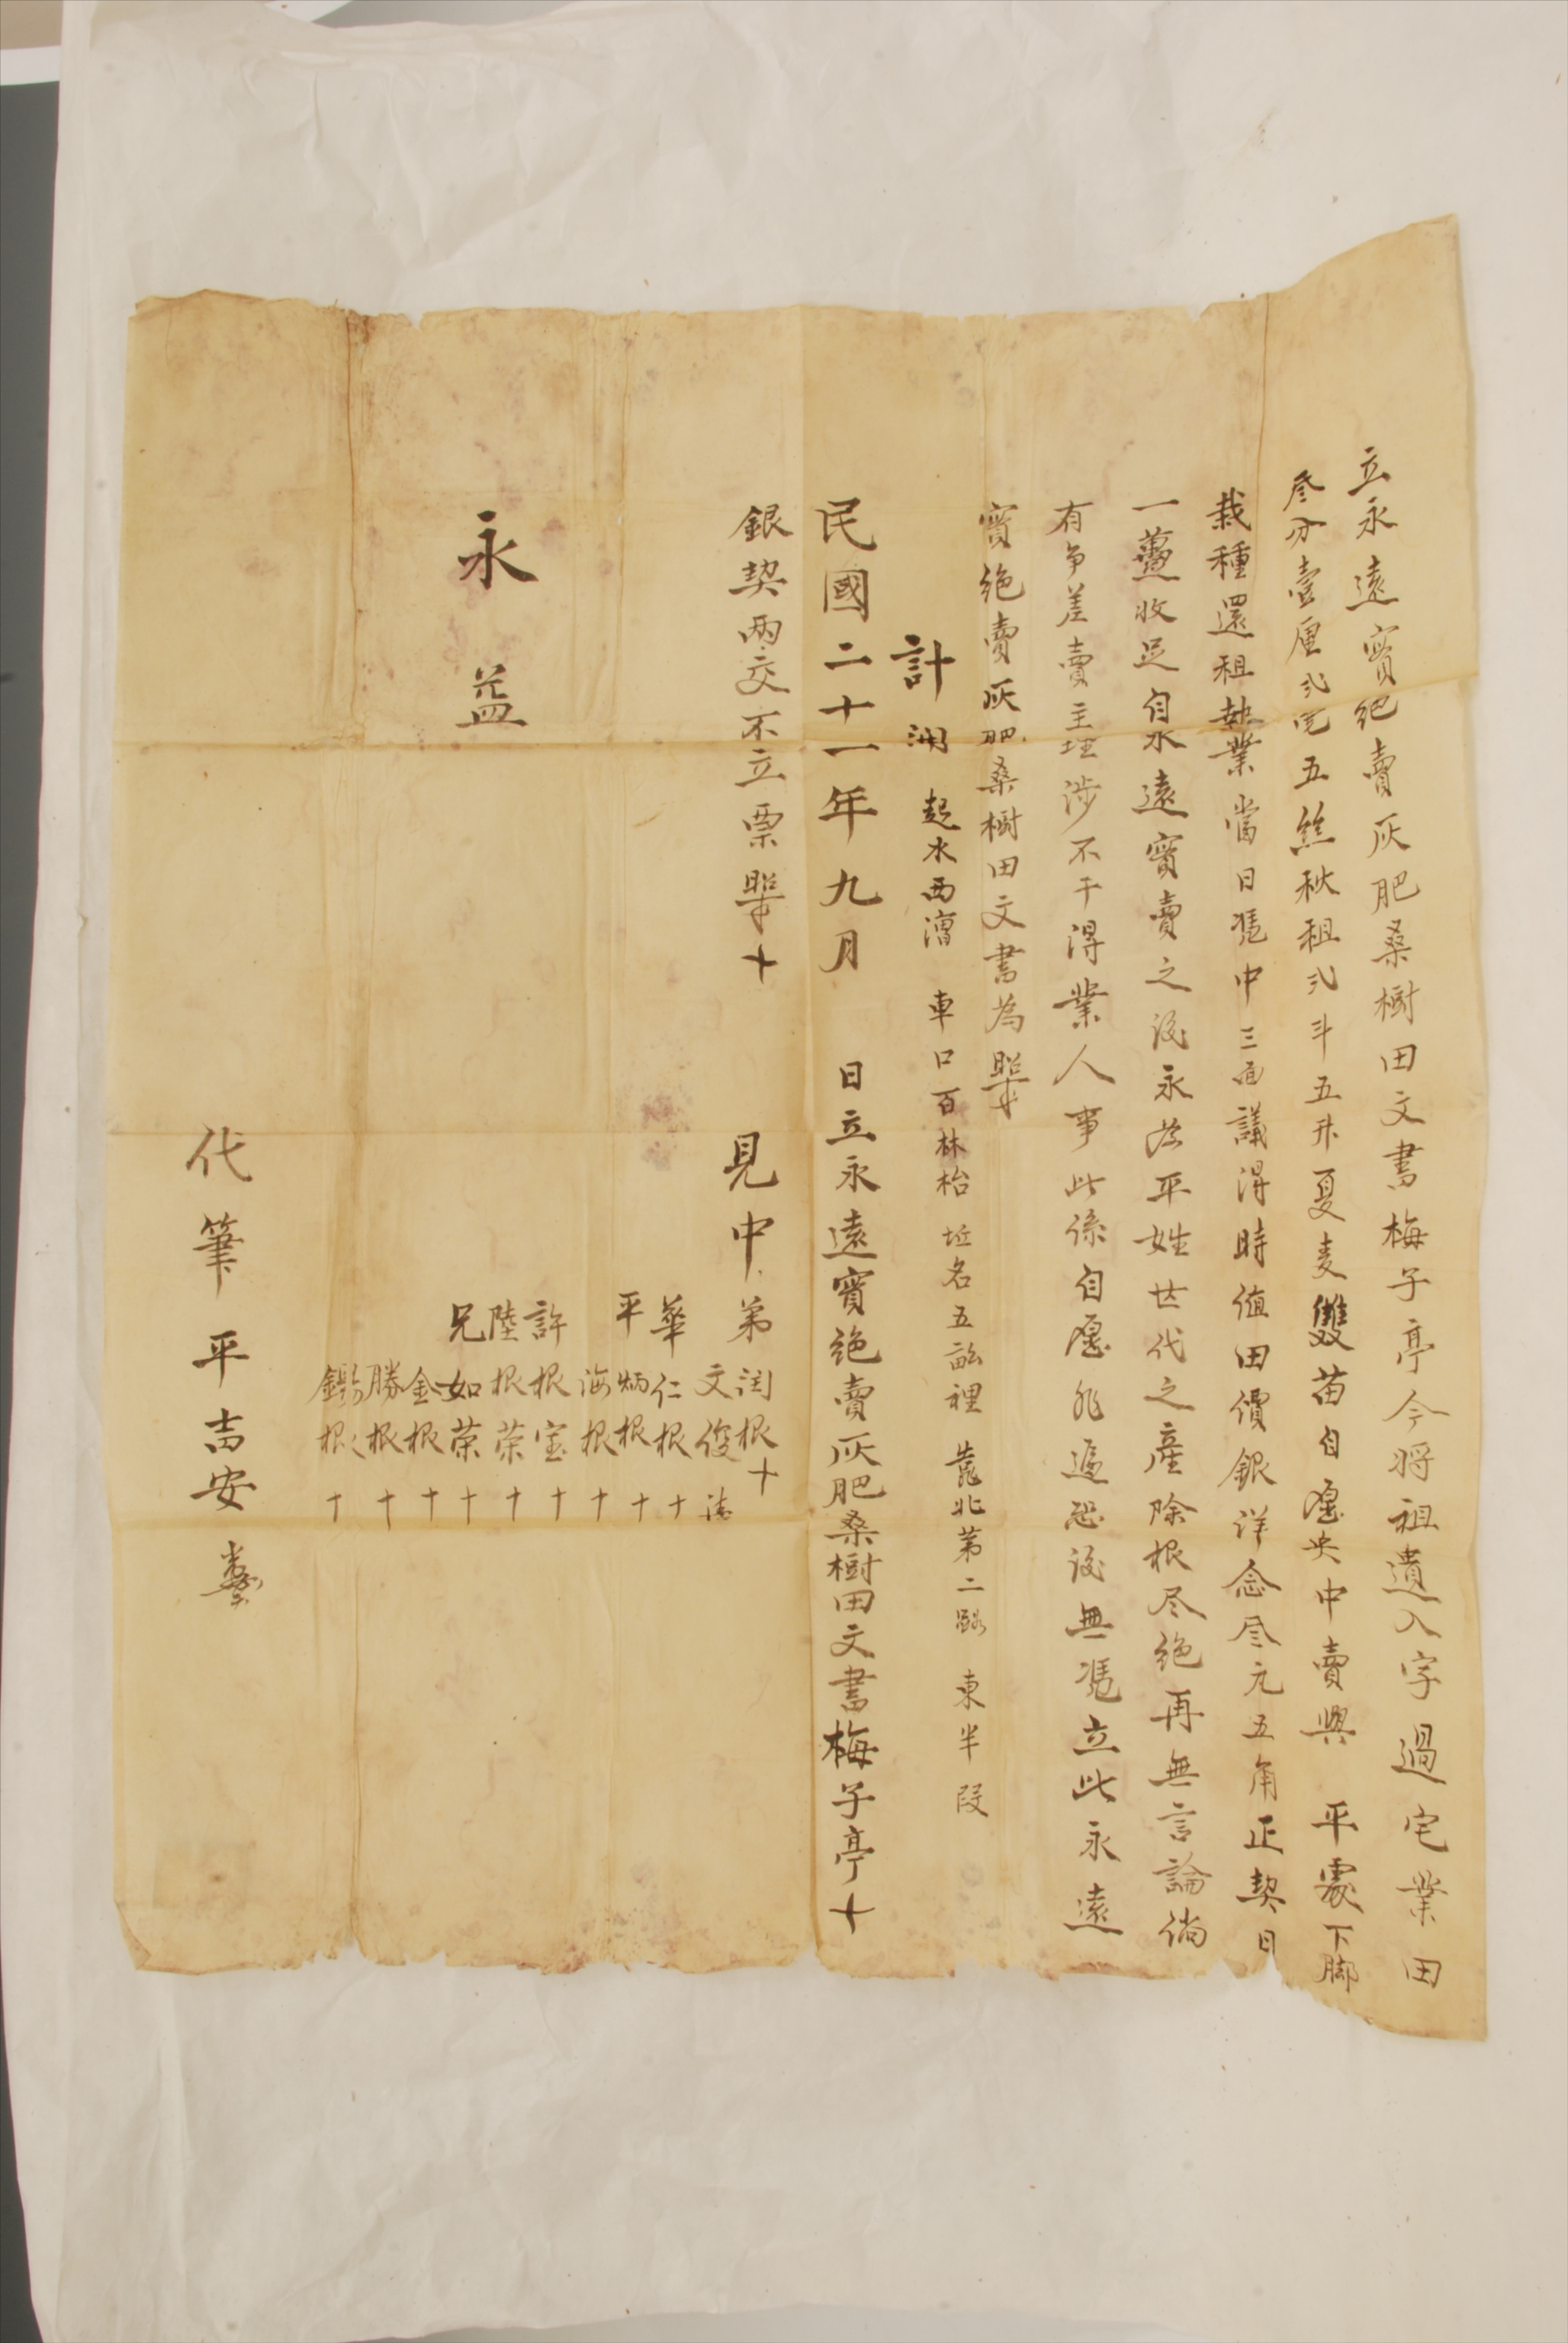 立永遠實絕賣灰肥桑樹田文書梅子亭今將祖遺入字過宅業田
叁分壹厘弍毫五絲秋租弍斗五升夏麦雙苗自愿央中賣與 平處下腳
栽種還租執業當日憑中三面議淂時值田價銀洋念叁元五角正契日
一躉收足自永遠實賣之後永為平姓世代之產除根尽絕再無言論倘
有争差賣主理涉不干淂業人事此係自愿非逼恐後無憑立此永遠
實絕賣灰肥桑樹田文書為照
計開 起水西漕 車口百林枱 坵名五畝裡 靠北第二路 東半段
民國二十一年九月 日立永遠實絕賣灰肥桑樹田文書梅子亭十
銀契兩交不立票照十
見中 弟 闰根十
文俊
華仁根十
平炳根十
海根十
許根宝十
陸根荣十
兄如荣十
金根十
勝根十
根十
永益
代筆 平吉安